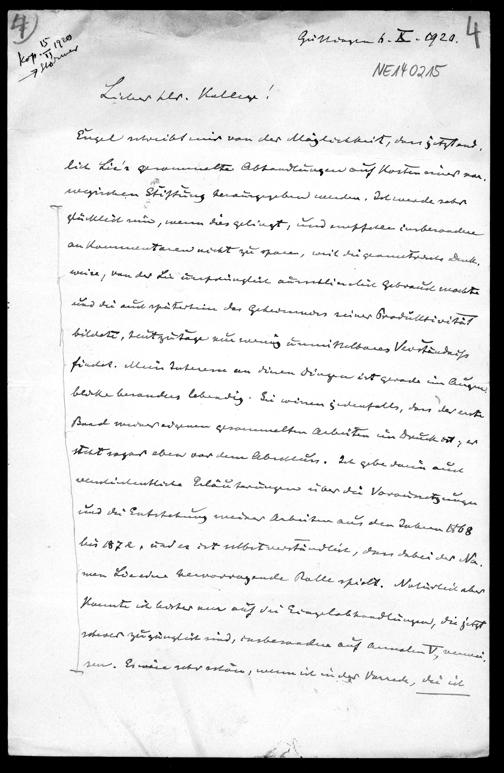 4
4
Kop. 15/XI 1920
→ Störmer
Göttingen 6. X. 1920.
NE140215
Lieber Hr. Kollege!
Engel schreibt mir von der Möglichkeit, dass jetzt end-
lich Lie's gesammelte Abhandlungen auf Kosten einer nor-
wegischen Stiftung herausgegeben werden. Ich werde sehr
glücklich sein, wenn dies gelingt, und empfehle insbesondere
an Kommentaren nicht zu sparen, weil die geometrische Denk-
weise, von der Lie ursprünglich ausschliesslich Gebrauch machte
und die auch späterhin das Geheimniss seiner Produktivität
bildete, heutzutage nur wenig unmittelbares Verständniss
findet. Mein Interesse an diesen Dingen ist gerade im Augen-
blicke besonders lebendig. Sie wissen jedenfalls, dass der erste
Band meiner eigenen gesammelten Arbeiten im Druck ist; er
steht sogar eben vor dem Abschluss. Ich gebe darin auch
Erläuterungen über die Voraussetzungen
und die Entstehung meiner Arbeiten aus den Jahren 1868
bis 1872, und es ist selbstverständlich, dass dabei der Na-
men Lie eine hervorragende Rolle spielt. Natürlich aber
konnte ich bisher nur auf die Einzelabhandlungen, die jetzt
schwer zugänglich sind, insbesondere auf Annalen V, verwei-
sen. Es wäre sehr schön, wenn ich in der Vorrede, die ich